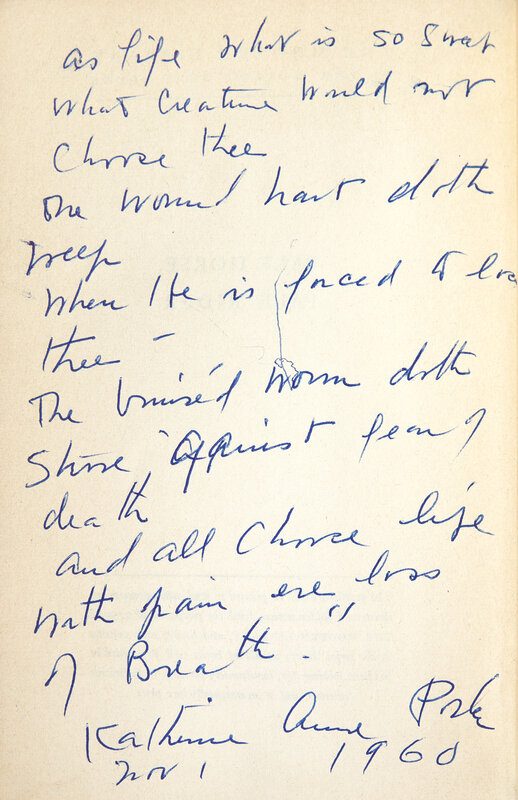 as life what is so sweet
what creature would not
choose thee
The wound hart doth
weep
when He is forced to lose
thee –
The bruis'd worm doth
strive, against fear of
death
and all choose life
with pain ere loss
of Breath."
Katherine Anne Porter
Nov 1 1960